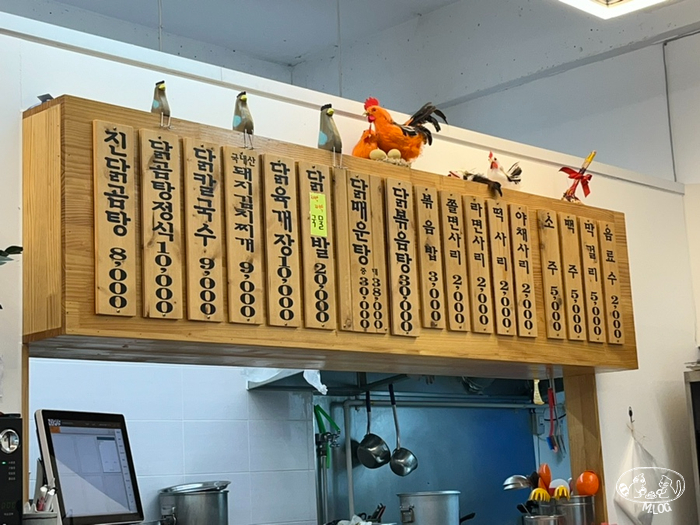 진닭곰탕 8,000
닭곰탕정식 10,000
닭칼국수 9,000
국내산
돼지김치찌개 9,000
닭육개장 10,000
닭
국물
발 20,000
닭매운탕
대 38,000
중 30,000
닭볶음탕 30,000
볶음밥 3,000
쫄면사리 2,000
라면사리 2,000
떡사리 2,000
야채사리 2,000
소주 5,000
맥주 5,000
막걸리 5,000
음료수 2,000
MLOG